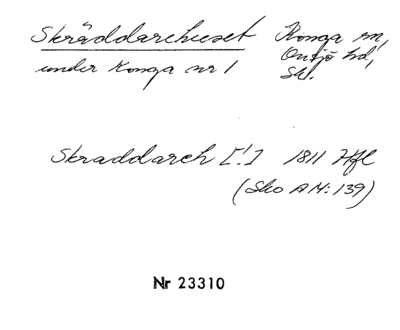 Skräddarehuset Konga sn,
under Konga nr 1 Onsjö hd,
Sk.
Skraddareh [!] 1811 Hfl
(Sko AM: 139)
Nr 23310